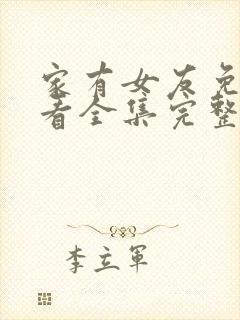 家有女友免
看全集完整
李立軍